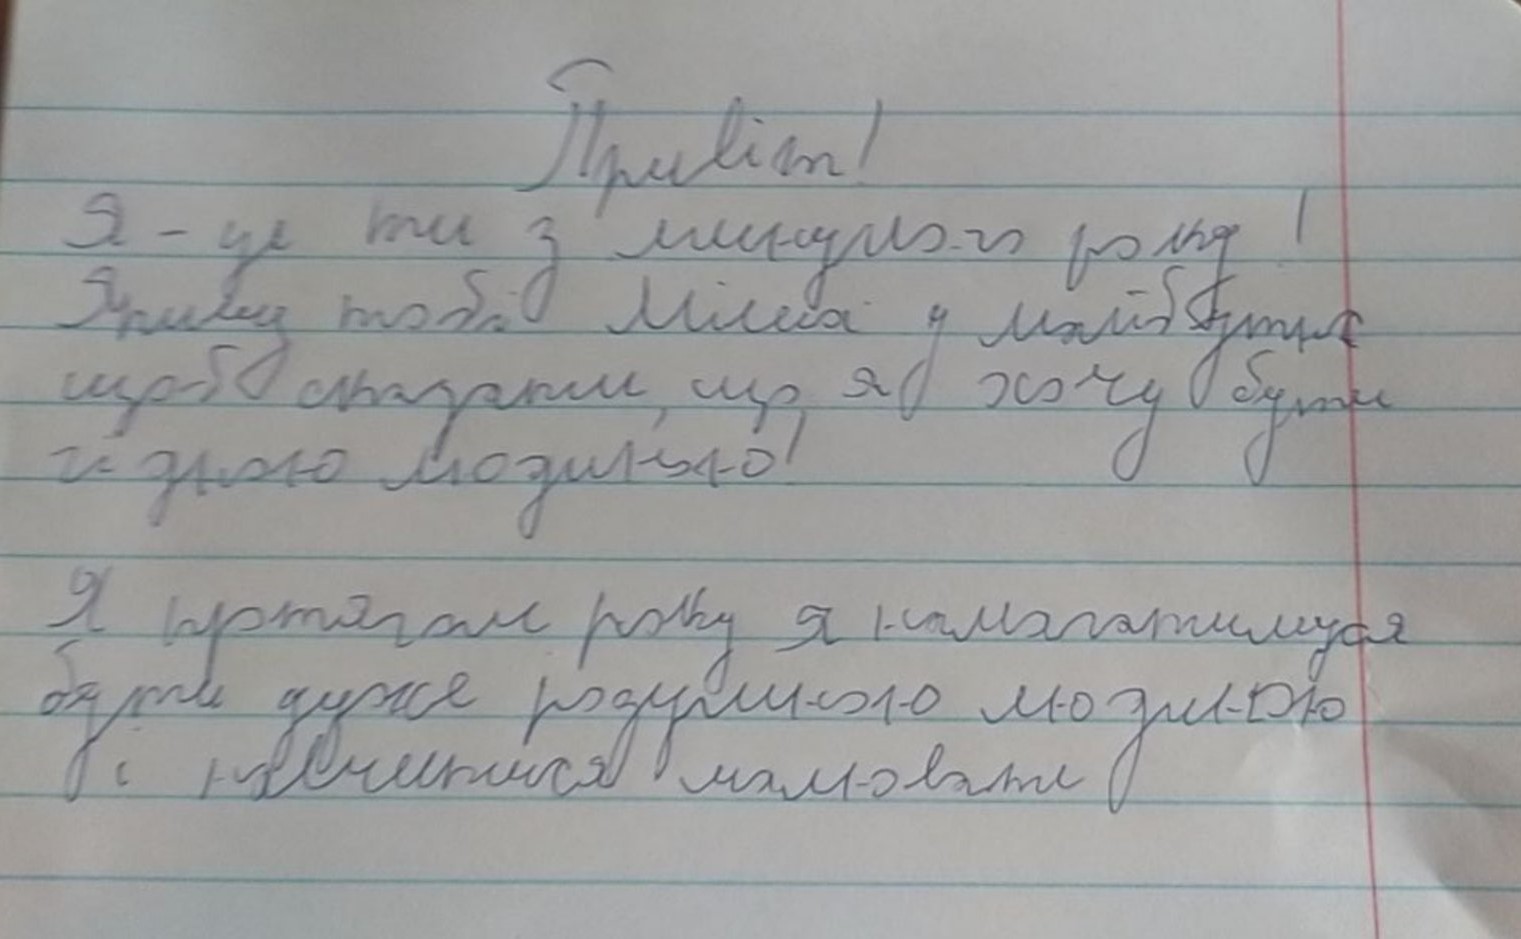 Привіт!
Я - це ти з минулого року!
Я пишу тобі Міша у майбутнє
щоб сказати, що я хочу бути
гідною людиною!
Я протягом року я намагатимуся
бути дуже розумною людиною
і навчитися малювати